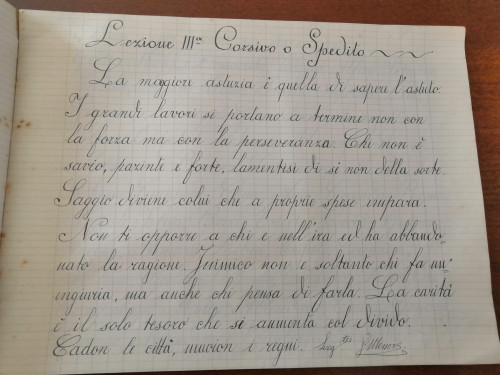 Lezione IIIa Corsivo o Spedito
La maggiore astuzia è quella di sapere l'astuto.
I grandi lavori si portano a termine non con
la forza ma con la perseveranza. Chi non è
savio, pazinte e forte, lamentisi di sè non della sorte.
Saggio diviene colui che a proprie spese impara.
Non ti opporre a chi è nell'ira ed ha abbando-
nato la ragione. Inimico non è soltanto chi fa un'
ingiuria, ma anche chi pensa di farla. La carità
è il solo tesoro che si aumenta col divido.
Cadon le città, muoion i regni.